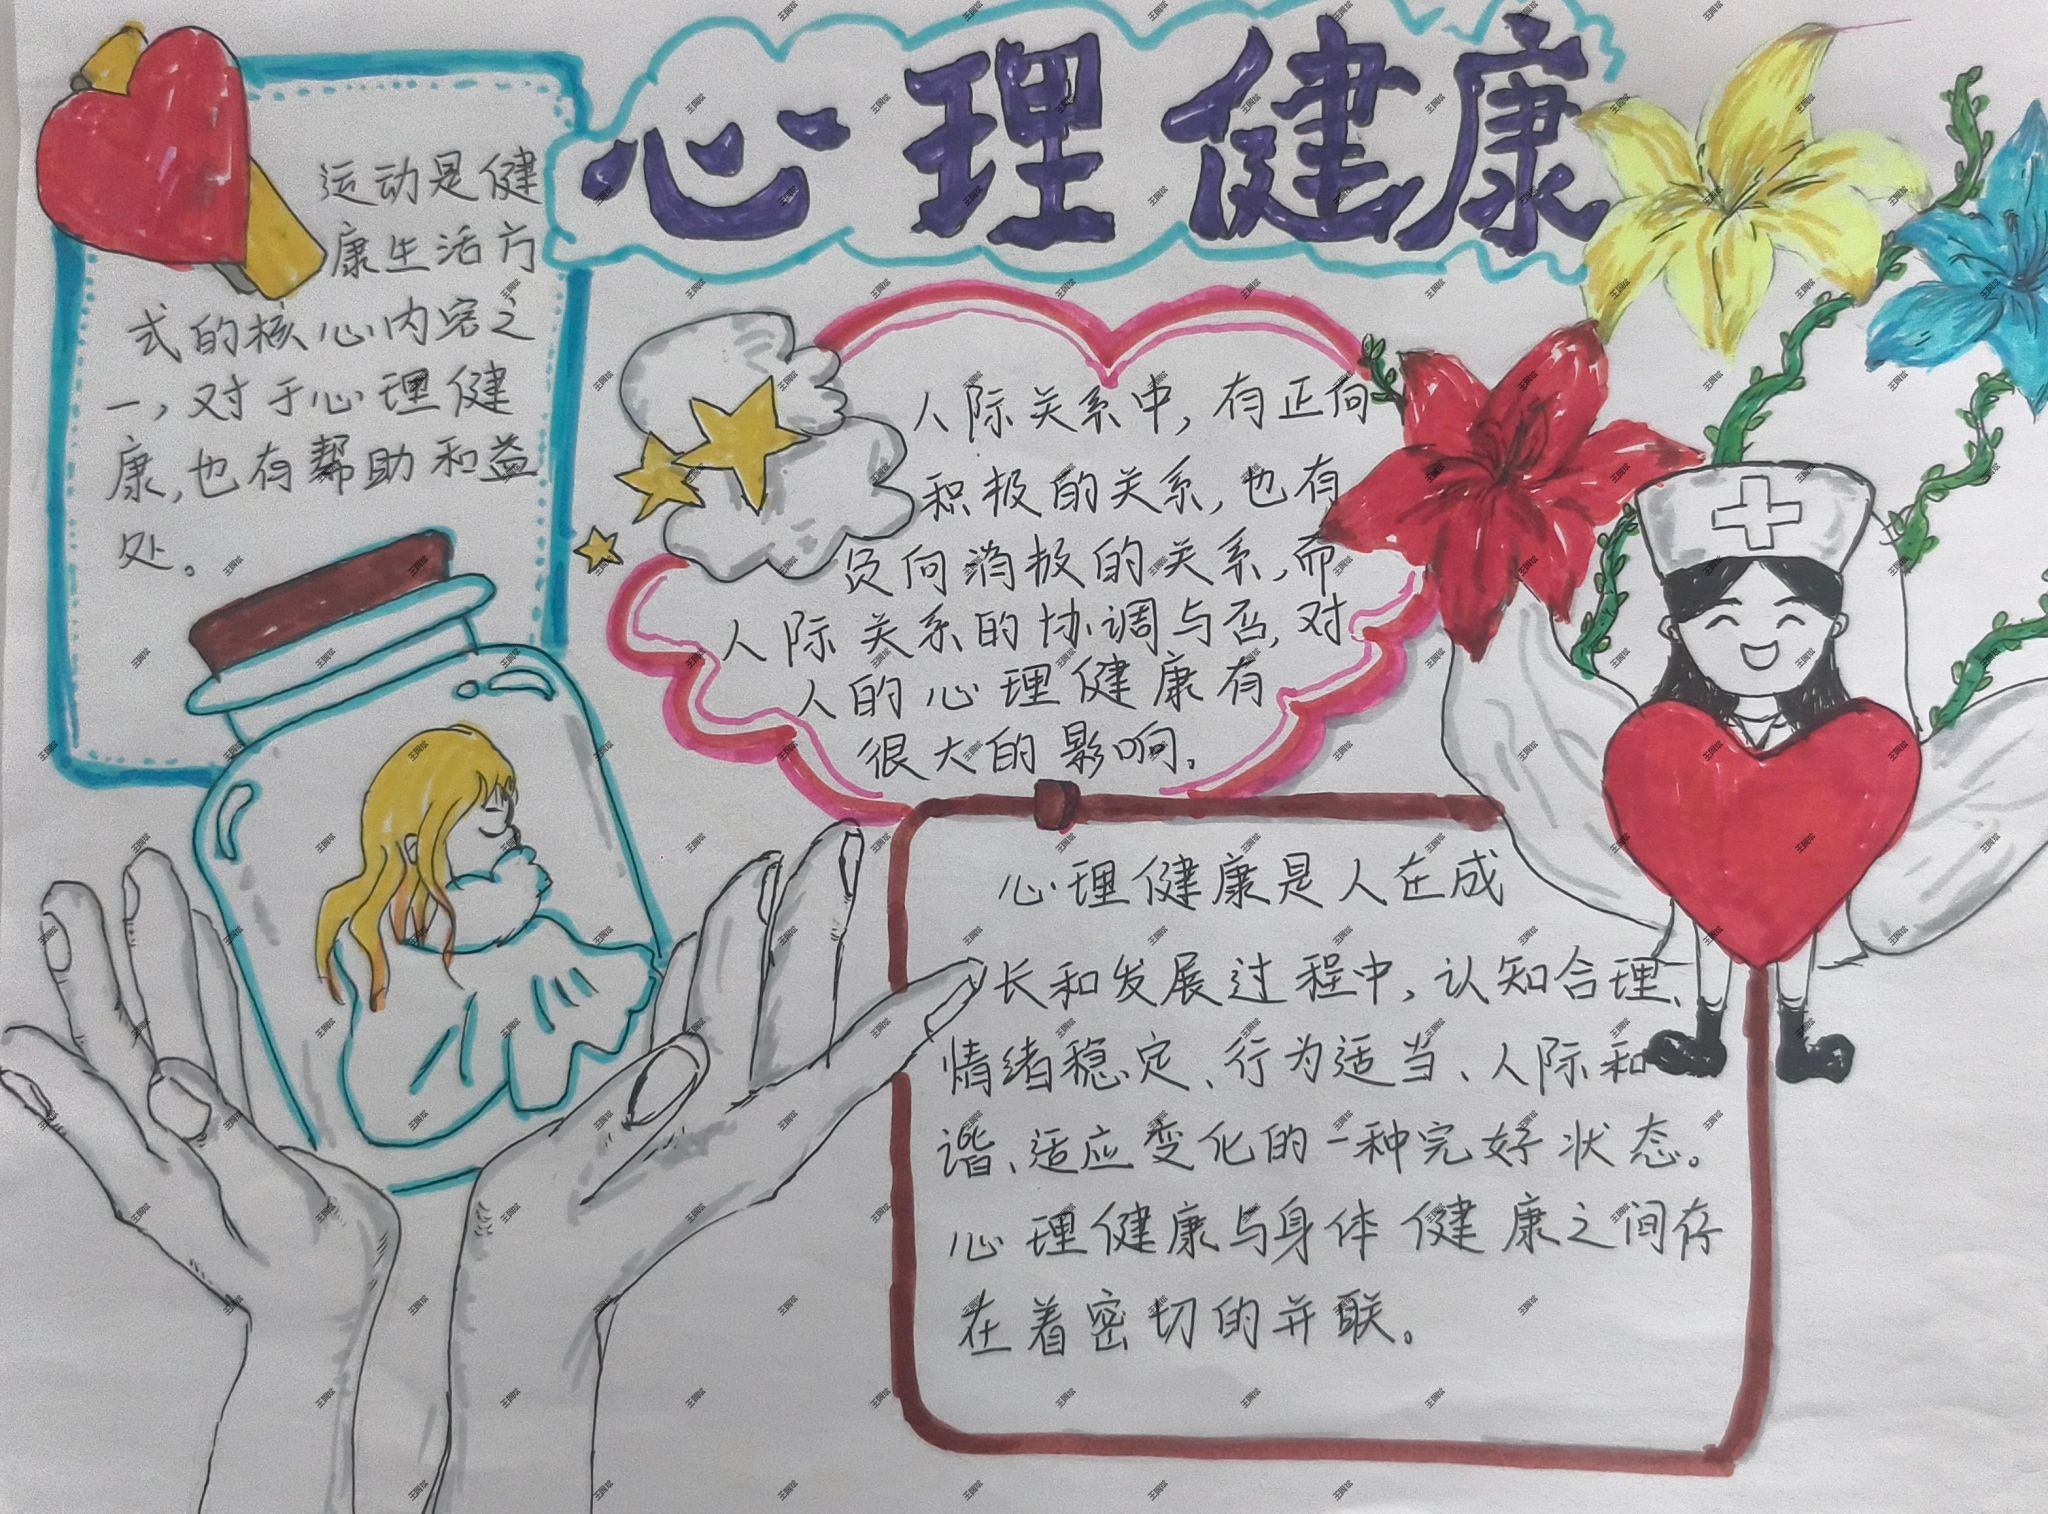 心理健康
运动是健
康生活方
式的核心内容之
一，对于心理健
康，也有帮助和益
处。
人际关系中，有正向
积极的关系，也有
负向消极的关系，而
人际关系的协调与否，对
人的心理健康有
很大的影响。
心理健康是人在成
长和发展过程中，认知合理、
情绪稳定、行为适当、人际和
谐、适应变化的一种完好状态。
心理健康与身体健康之间存
在着密切的并联。